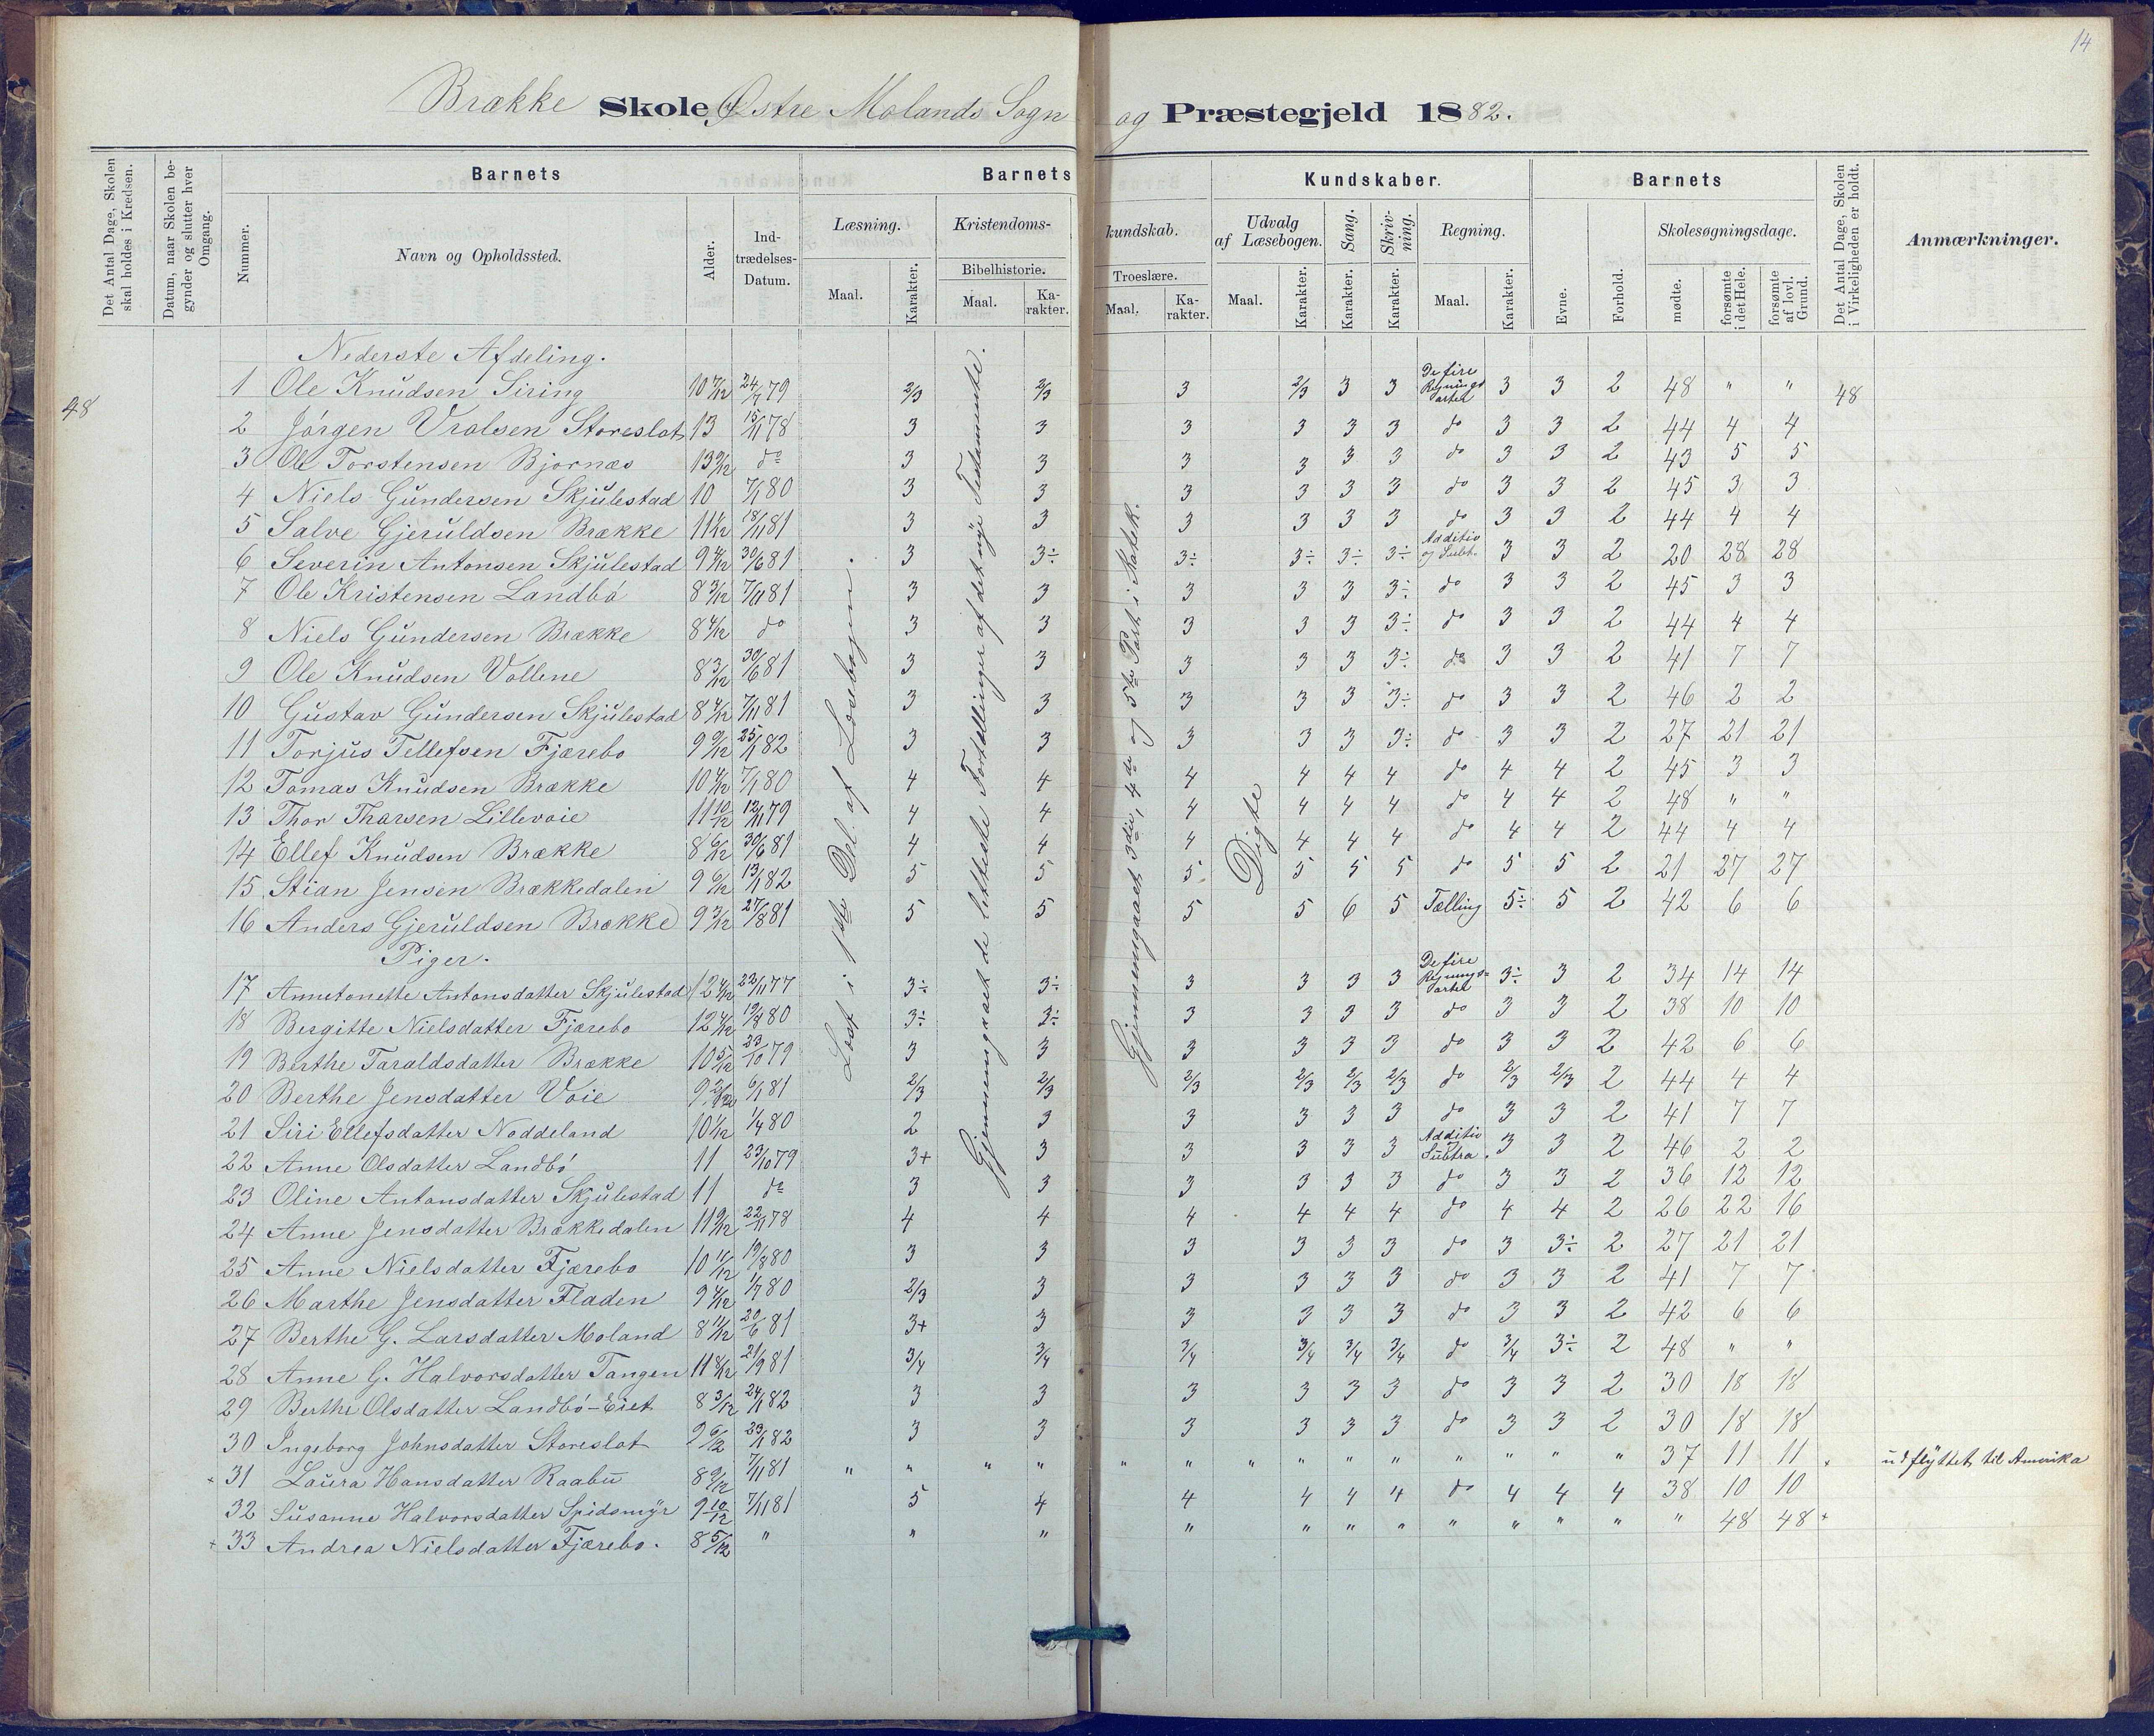 14
Brække Skole, Østre Molands Sogn og Præstegjeld 1882.
Det Antal Dage, Skolen skal holdes i Kredsen.
Datum, naar Skolen begynder og slutter hver Omgang.
Barnets
Nummer.
Navn og Opholdssted.
Alder.
Indtrædelses-Datum.
Barnets Kundskaber.
Læsning.
Maal.
Karakter.
Kristendomskundskab.
Bibelhistorie.
Maal.
Karakter.
Troeslære.
Maal.
Karakter.
Udvalg af Læsebogen.
Maal.
Karakter.
Sang.
Karakter.
Skrivning.
Karakter.
Regning.
Maal.
Karakter.
Barnets
Evne.
Forhold.
Skolesøgningsdage.
mødte.
forsømte i det Hele.
forsømte af lovl. Grund.
Det Antal Dage, Skolen i Virkeligheden er holdt.
Anmærkninger.
Læst i 1ste Del af Læsebogen.
Gjennemgaaet de letteste Fortællinger af det nye Testamente.
Gjennemgaaet 3die, 4de og 5te Part i Katek.
Digte
48
Nederste Afdeling.
1 Ole Knudsen Siring 10 7/12 24/7 79 2/3 2/3 3 2/3 3 3 De fire Regnings arter 3 3 2 48 " " 48
2 Jörgen Vralsen Storeslot 13 15/11 78 3 3 3 3 3 3 do 3 3 2 44 4 4
3 Ole Torstensen Bjornæs 13 9/12 do 3 3 3 3 3 3 do 3 3 2 43 5 5
4 Niels Gundersen Skjulestad 10 7/1 80 3 3 3 3 3 3 do 3 3 2 45 3 3
5 Salve Gjeruldsen Brække 11 1/12 18/11 81 3 3 3 3 3 3 do 3 3 2 44 4 4
6 Severin Antonsen Skjulestad 9 4/12 30/6 81 3 3÷ 3÷ 3÷ 3÷ 3÷ Additio og Subt. 3 3 2 20 28 28
7 Ole Kristensen Landbö 8 3/12 7/11 81 3 3 3 3 3 3÷ do 3 3 2 45 3 3
8 Niels Gundersen Brække 8 4/12 do 3 3 3 3 3 3÷ do 3 3 2 44 4 4
9 Ole Knudsen Vollene 8 3/12 30/6 81 3 3 3 3 3 3÷ do 3 3 2 41 7 7
10 Gustav Gundersen Skjulestad 8 4/12 7/11 81 3 3 3 3 3 3÷ do 3 3 2 46 2 2
11 Torjus Tellefsen Fjærebo 9 9/12 25/1 82 3 3 3 3 3 3÷ do 3 3 2 27 21 21
12 Tomas Knudsen Brække 10 4/12 7/1 80 4 4 4 4 4 4 do 4 4 2 45 3 3
13 Thor Tharsen Lillevoie 11 10/12 12/11 79 4 4 4 4 4 4 do 4 4 2 48 " "
14 Ellef Knudsen Brække 8 6/12 30/6 81 4 4 4 4 4 4 do 4 4 2 44 4 4
15 Stian Jensen Brækkedalen 9 6/12 13/1 82 5 5 5 5 5 5 do 5 5 2 21 27 27
16 Anders Gjeruldsen Brække 9 3/12 27/8 81 5 5 5 5 6 5 Tælling 5÷ 5 2 42 6 6
Piger.
17 Annetonette Antonsdatter Skjulestad 12 4/12 22/11 77 3÷ 3÷ 3 3 3 3 De fire Regnings= arter 3÷ 3 2 34 14 14
18 Bergitte Nielsdatter Fjærebo 12 4/12 19/8 80 3÷ 3÷ 3 3 3 3 do 3 3 2 38 10 10
19 Berthe Taraldsdatter Brække 10 5/12 23/10 79 3 3 3 3 3 3 do 3 3 2 42 6 6
20 Berthe Jensdatter Voie 9 2/12 6/1 81 2/3 2/3 2/3 2/3 2/3 2/3 do 2/3 2/3 2 44 4 4
21 Siri Ellefsdatter Noddeland 10 1/12 1/4 80 2 3 3 3 3 3 do 3 3 2 41 7 7
22 Anne Olsdatter Landbö 11 23/10 79 3+ 3 3 3 3 3 Additio Subtra. 3 3 2 46 2 2
23 Oline Antonsdatter Skjulestad 11 do 3 3 3 3 3 3 do 3 3 2 36 12 12
24 Anne Jensdatter Brækkedalen 11 9/12 22/11 78 4 4 4 4 4 4 do 4 4 2 26 22 16
25 Anne Nielsdatter Fjærebo 10 11/12 19/8 80 3 3 3 3 3 3 do 3 3÷ 2 27 21 21
26 Marthe Jensdatter Fladen 9 4/12 1/7 80 2/3 3 3 3 3 3 do 3 3 2 41 7 7
27 Berthe G. Larsdatter Moland 8 11/12 20/6 81 3+ 3 3 3 3 3 do 3 3 2 42 6 6
28 Anne G. Halvorsdatter Tangen 11 8/12 21/9 81 3/4 3/4 3/4 3/4 3/4 3/4 do 3/4 3÷ 2 48 " "
29 Berthe Olsdatter Landbö-Eiet 8 3/12 24/1 82 3 3 3 3 3 3 do 3 3 2 30 18 18
30 Ingeborg Johnsdatter Storeslot 9 6/12 23/1 82 3 3 3 3 3 3 do 3 3 2 30 18 18
+ 31 Laura Hansdatter Raabu 8 9/12 7/11 81 " " " " " " " " " " " " " " 37 11 11 udflyttet til Amerika
32 Susanne Halvorsdatter Spidsmyr 9 10/12 7/11 81 5 4 4 4 4 4 do 4 4 4 38 10 10
+ 33 Andrea Nielsdatter Fjærebo. 8 5/12 " " " " " " " " " " " " 48 48 +